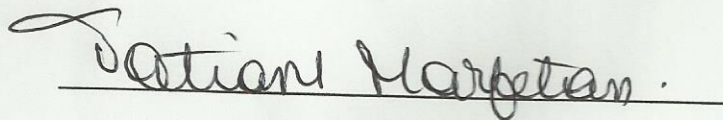 Tatiane Marfetan.